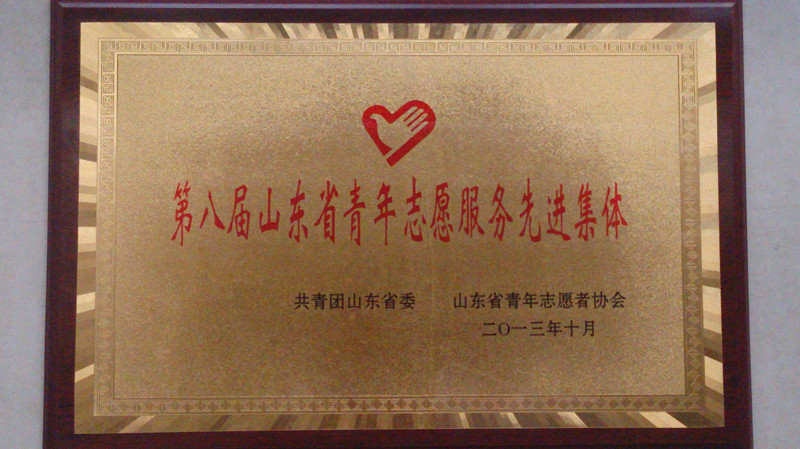 第八届山东省青年志愿服务先进集体
共青团山东省委 山东省青年志愿者协会
二〇一三年十月